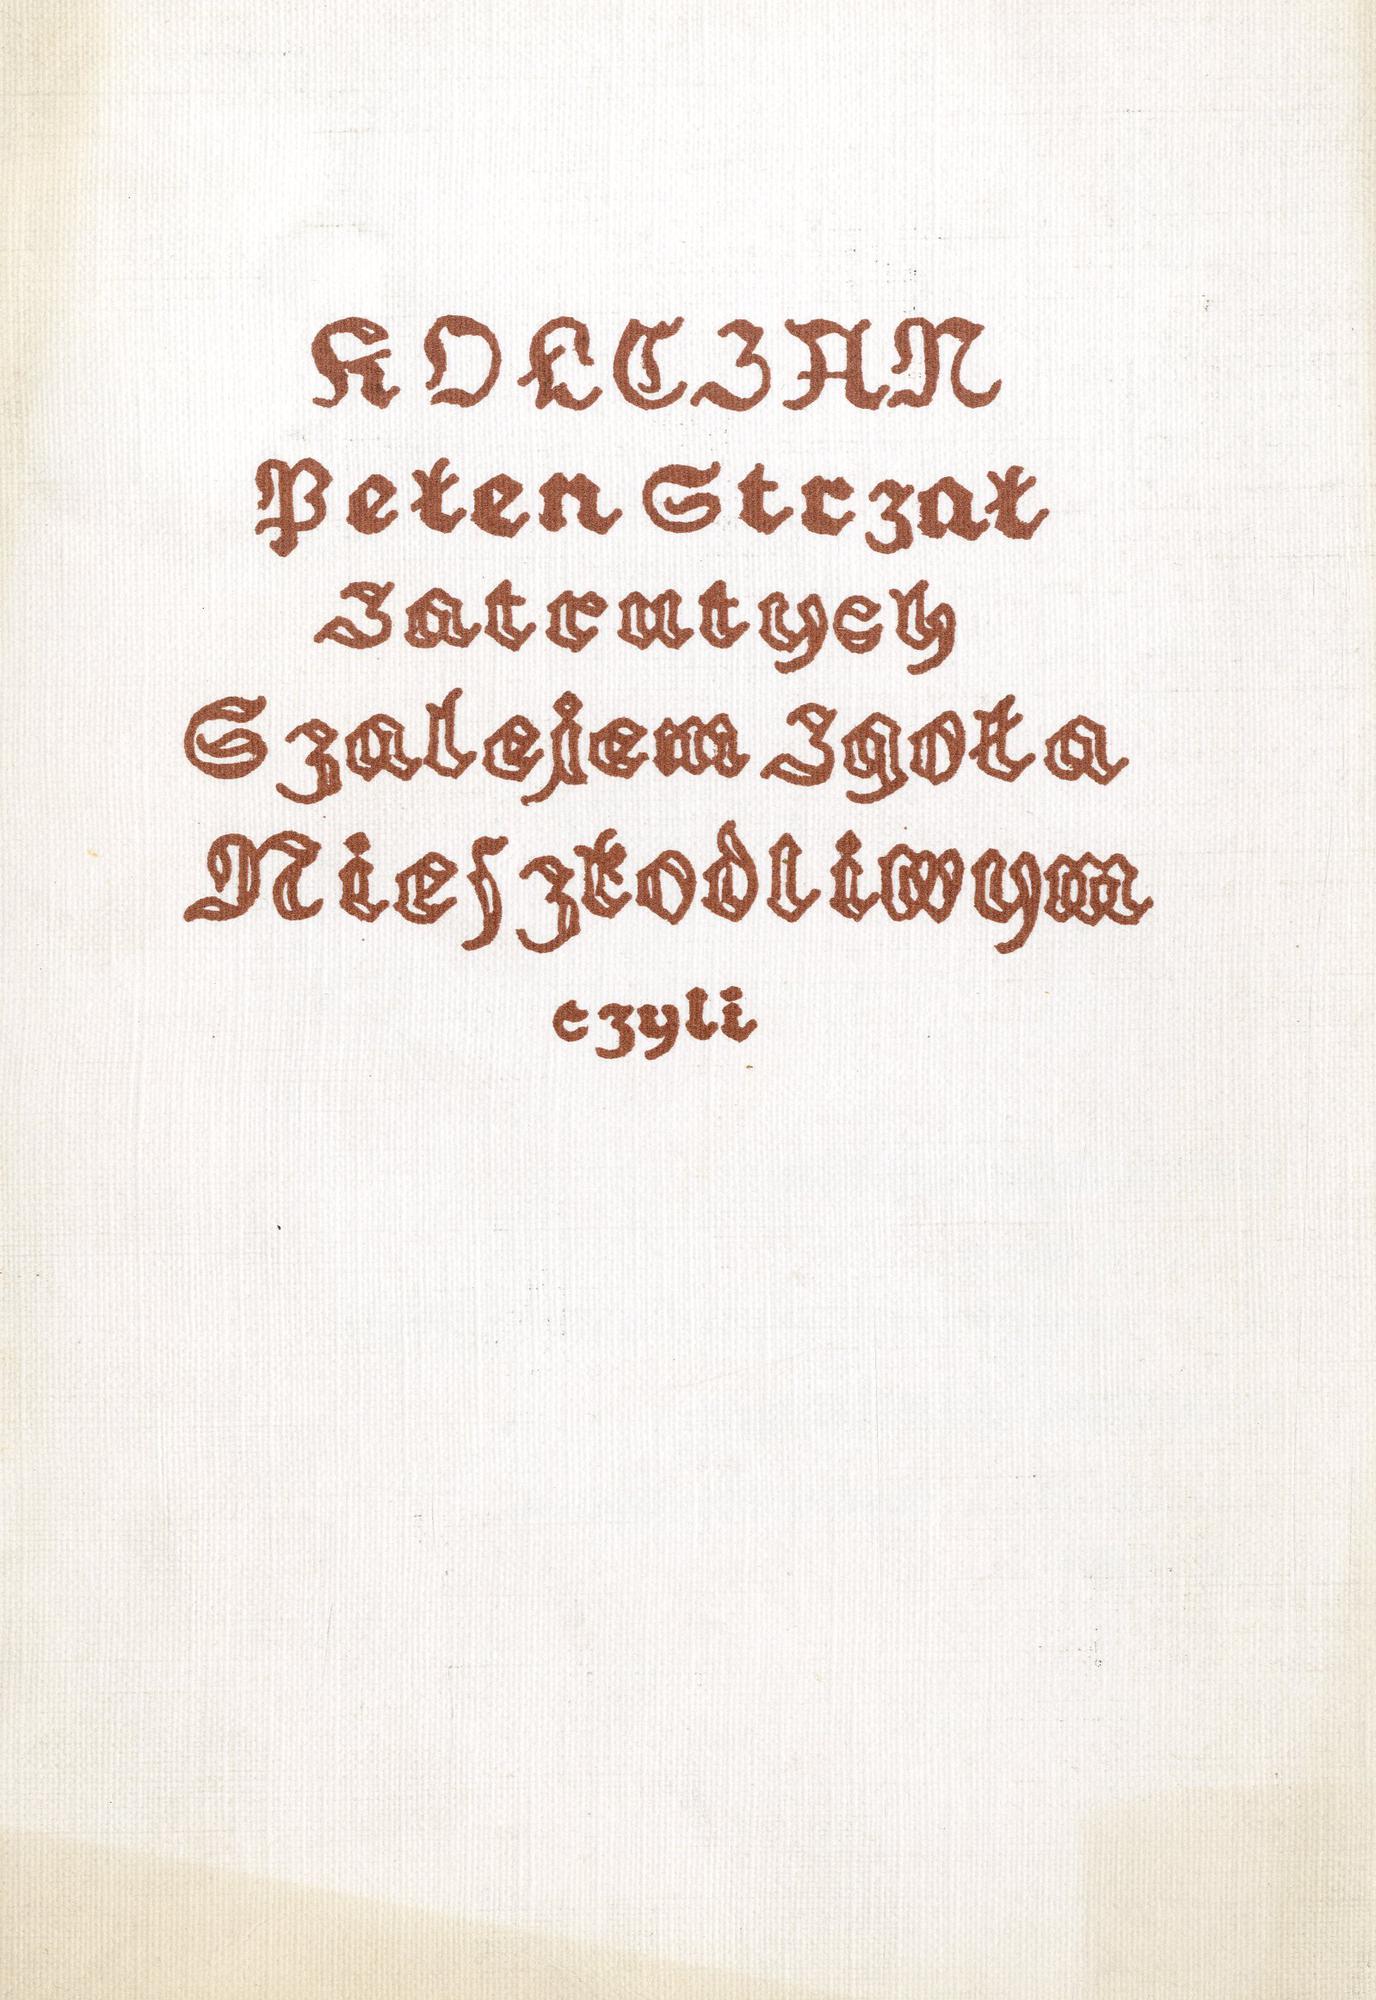 KOŁCZAN
Pełen Strzał
Zatrutych
Szalejem Zgoła
Nieszkodliwym
czyli